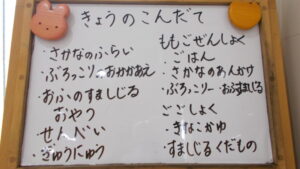 きょうのこんだて
・さかなのふらい
・ぶろっこりーおかかあえ
・おふのすましじる
おやつ
・せんべい
・ぎゅうにゅう
ももごぜんしょく
・ごはん
・さかなのあんかけ
・ぶろっこりー・おふすましじる
ごごしょく
・きなこかゆ
・すましじるくだもの